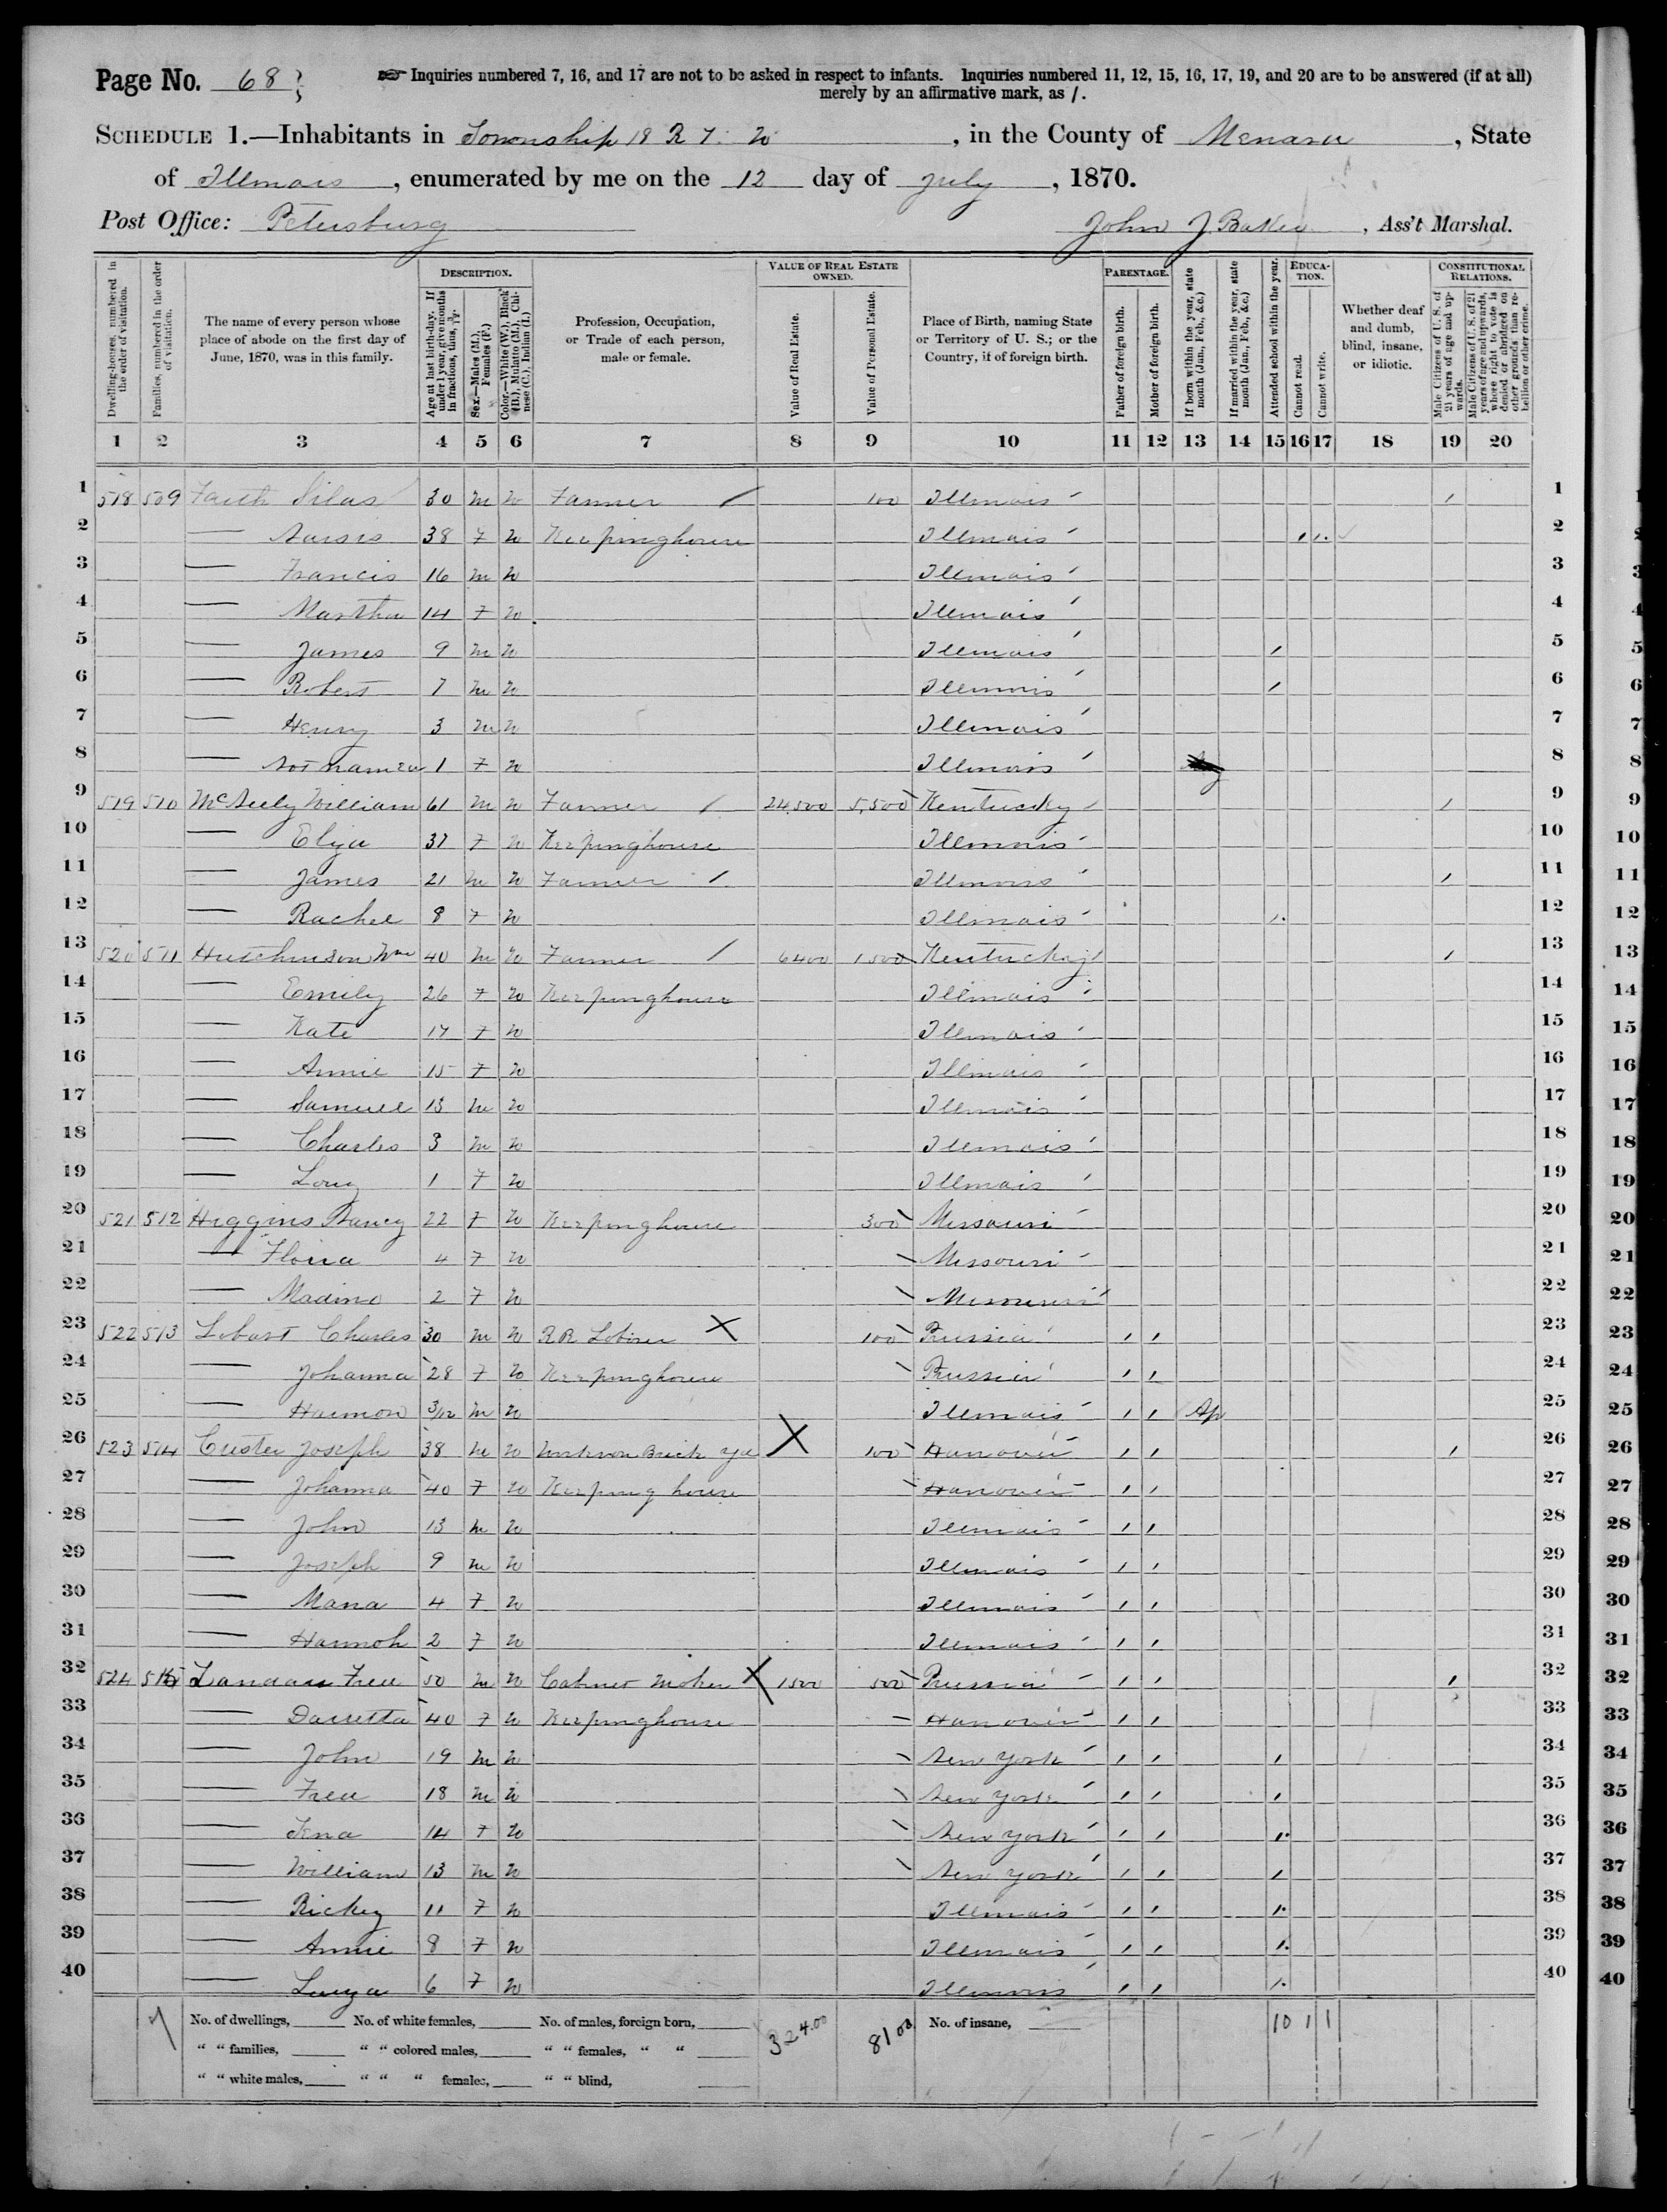 Page No. 68
☞ Inquiries numbered 7, 16, and 17 are not to be asked in respect to infants. Inquiries numbered 11, 12, 15, 16, 17, 19, and 20 are to be answered (if at all)
merely by an affirmative mark, as /.
SCHEDULE 1.—Inhabitants in Township 18 R 7 W, in the County of Menard, State
of Illinois, enumerated by me on the 12 day of July, 1870.
Post Office: Petersburg John J Baker, Ass't Marshal.
Dwelling-houses, numbered in the order of visitation.
Families, numbered in the order of visitation.
The name of every person whose place of abode on the first day of June, 1870, was in this family.
DESCRIPTION.
Age at last birth-day. If under 1 year, give months in fractions, thus, 3/12.
Sex.—Males (M.), Females (F.)
Color.—White (W.), Black (B.), Mulatto (M.), Chinese (C.), Indian (I.)
Profession, Occupation, or Trade of each person, male or female.
VALUE OF REAL ESTATE OWNED.
Value of Real Estate.
Value of Personal Estate.
Place of Birth, naming State or Territory of U. S.; or the Country, if of foreign birth.
PARENTAGE.
Father of foreign birth.
Mother of foreign birth.
If born within the year, state month (Jan., Feb., &c.)
If married within the year, state month (Jan., Feb., &c.)
Attended school within the year.
EDUCATION.
Cannot read.
Cannot write.
Whether deaf and dumb, blind, insane, or idiotic.
CONSTITUTIONAL RELATIONS.
Male Citizens of U. S. of 21 years of age and upwards.
Male Citizens of U. S. of 21 years of age and upwards, whose right to vote is denied or abridged on other grounds than rebellion or other crime.
1 2 3 4 5 6 7 8 9 10 11 12 13 14 15 16 17 18 19 20
1 518 509 Faith Silas 30 M W Farmer / 100 Illinois / 1
2 — 38 F W Keepinghouse Illinois / / 2
3 — Francis 16 M W Illinois 3
4 — Martha 14 F W Illinois 4
5 — James 9 M W Illinois / 5
6 — Robert 7 M W Illinois / 6
7 — Henry 3 M W Illinois 7
8 — Not named 1 F W Illinois 8
9 519 510 McNeely William 61 M W Farmer / 24,500 5,500 Kentucky / 9
10 — Eliza 37 F W Keepinghouse Illinois 10
11 — James 21 M W Farmer / Illinois / 11
12 — Rachel 8 F W Illinois / 12
13 520 511 Hutchinson Wm 40 M W Farmer / 6400 1500 Kentucky / 13
14 — Emily 26 F W Keepinghouse Illinois 14
15 — Kate 17 F W Illinois 15
16 — Annie 15 F W Illinois 16
17 — Samuel 13 M W Illinois 17
18 — Charles 3 M W Illinois 18
19 — Louy 1 F W Illinois 19
20 521 512 Higgins Nancy 22 F W Keepinghouse 300 Missouri 20
21 — Flora 4 F W Missouri 21
22 — 2 F W Missouri 22
23 522 513 Lobart Charles 30 M W RR Laborer X 100 Prussia / / 23
24 — Johanna 28 F W Keepinghouse Prussia / / 24
25 — Harmon 3/12 M W Illinois / / Ap 25
26 523 514 Custer Joseph 38 M W Works on Brick Yd X 100 Hanover / / / 26
27 — Johanna 40 F W Keeping house Hanover / / 27
28 — John 13 M W Illinois / / 28
29 — Joseph 9 M W Illinois / / 29
30 — Maria 4 F W Illinois / / 30
31 — Hannah 2 F W Illinois / / 31
32 524 515 Fred 50 M W Cabinet Maker X 1500 500 Prussia / / / 32
33 — 40 F W Keepinghouse Hanover / / 33
34 — John 19 M W New York / / / 34
35 — Fred 18 M W New York / / / 35
36 — Lena 14 F W New York / / / 36
37 — William 13 M W New York / / / 37
38 — Rickey 11 F W Illinois / / / 38
39 — Annie 8 F W Illinois / / / 39
40 — Luiza 6 F W Illinois / / / 40
7 No. of dwellings, No. of white females, No. of males, foreign born, 324.00 8100 No. of insane, 10 1 1
" " families, " " colored males, " " females, " "
" " white males, " " " females, " " blind,